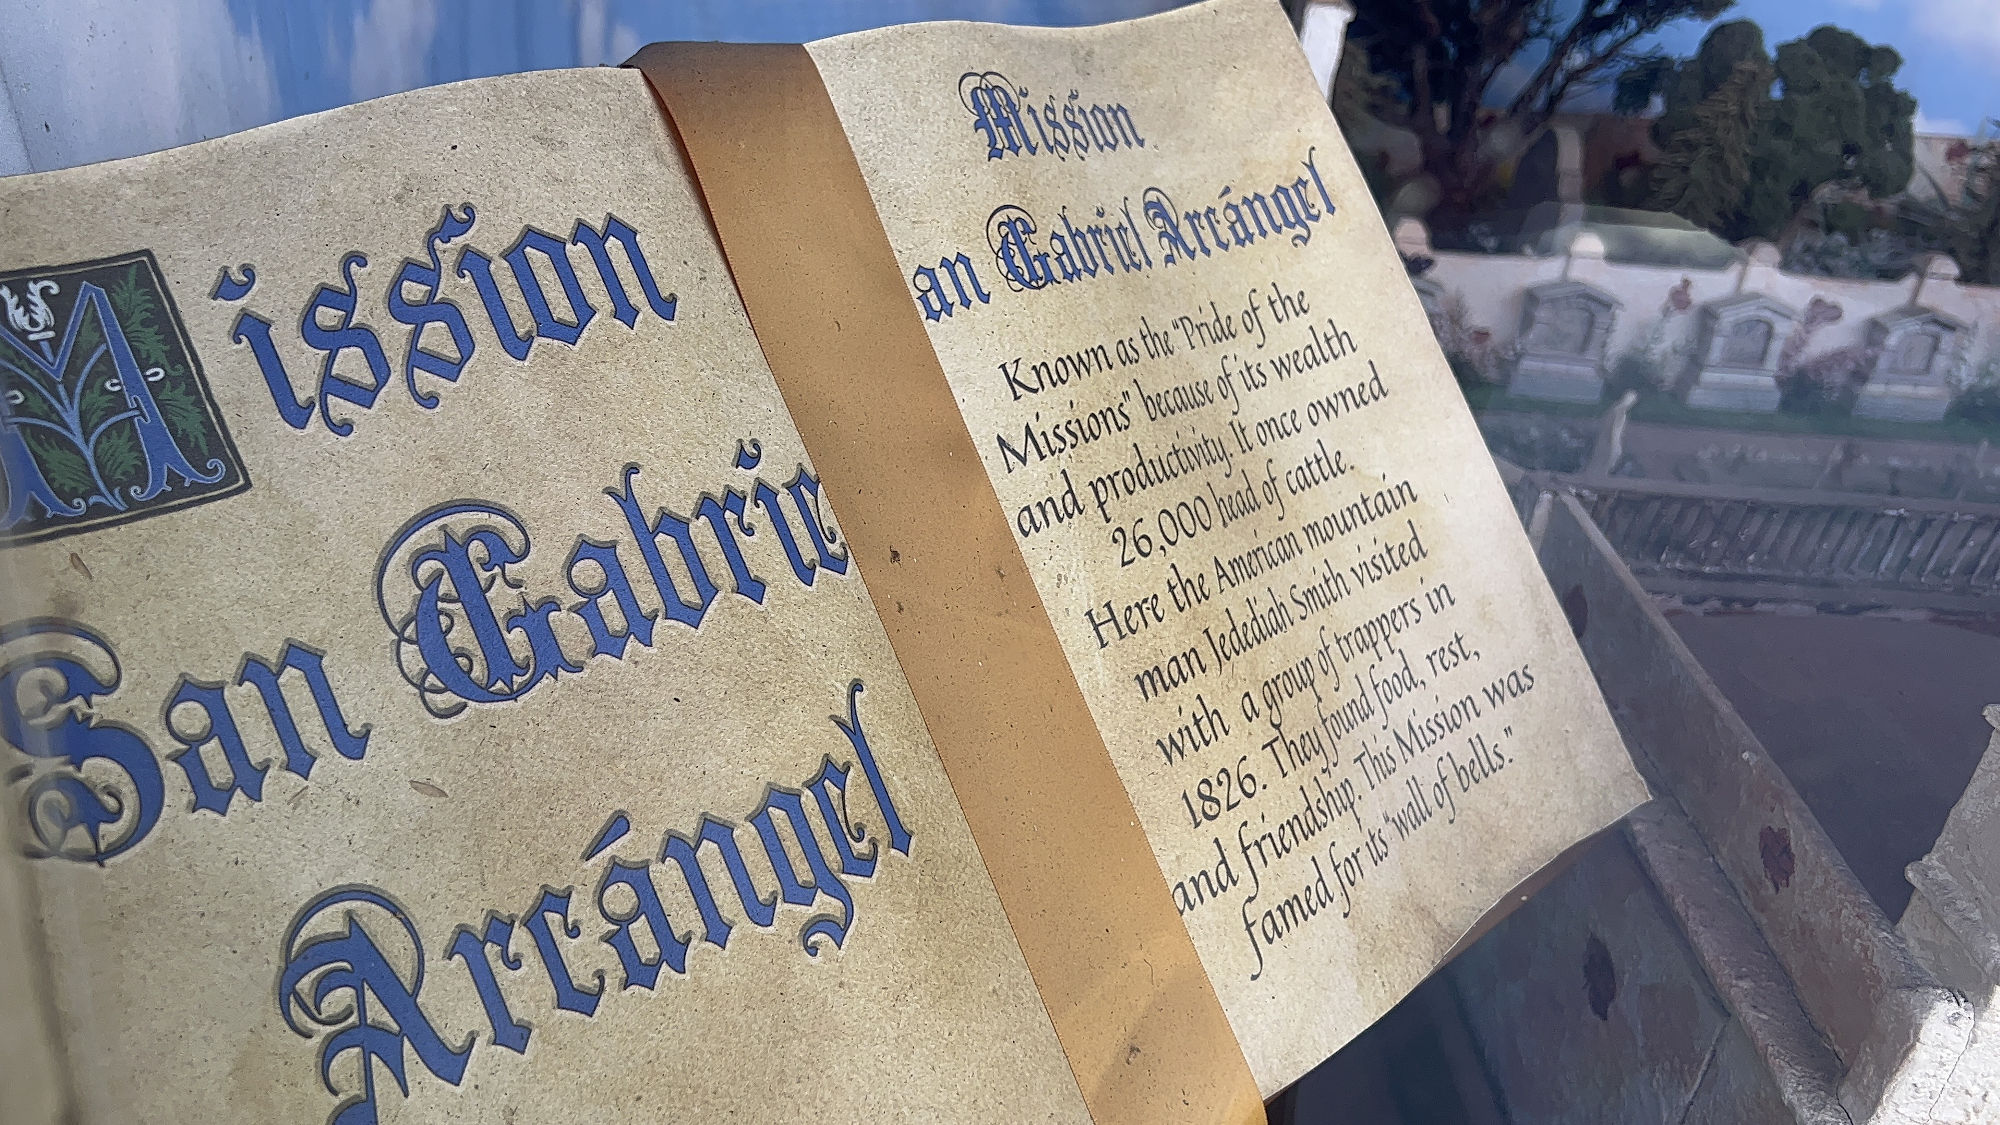 Mission
San Gabrie
Arcángel
Mission
an Gabriel Arcángel
Known as the "Pride of the
Missions" because of its wealth
and productivity. It once owned
26,000 head of cattle.
Here the American mountain
man Jedediah Smith visited
with a group of trappers in
1826. They found food, rest,
and friendship. This Mission was
famed for its "wall of bells."